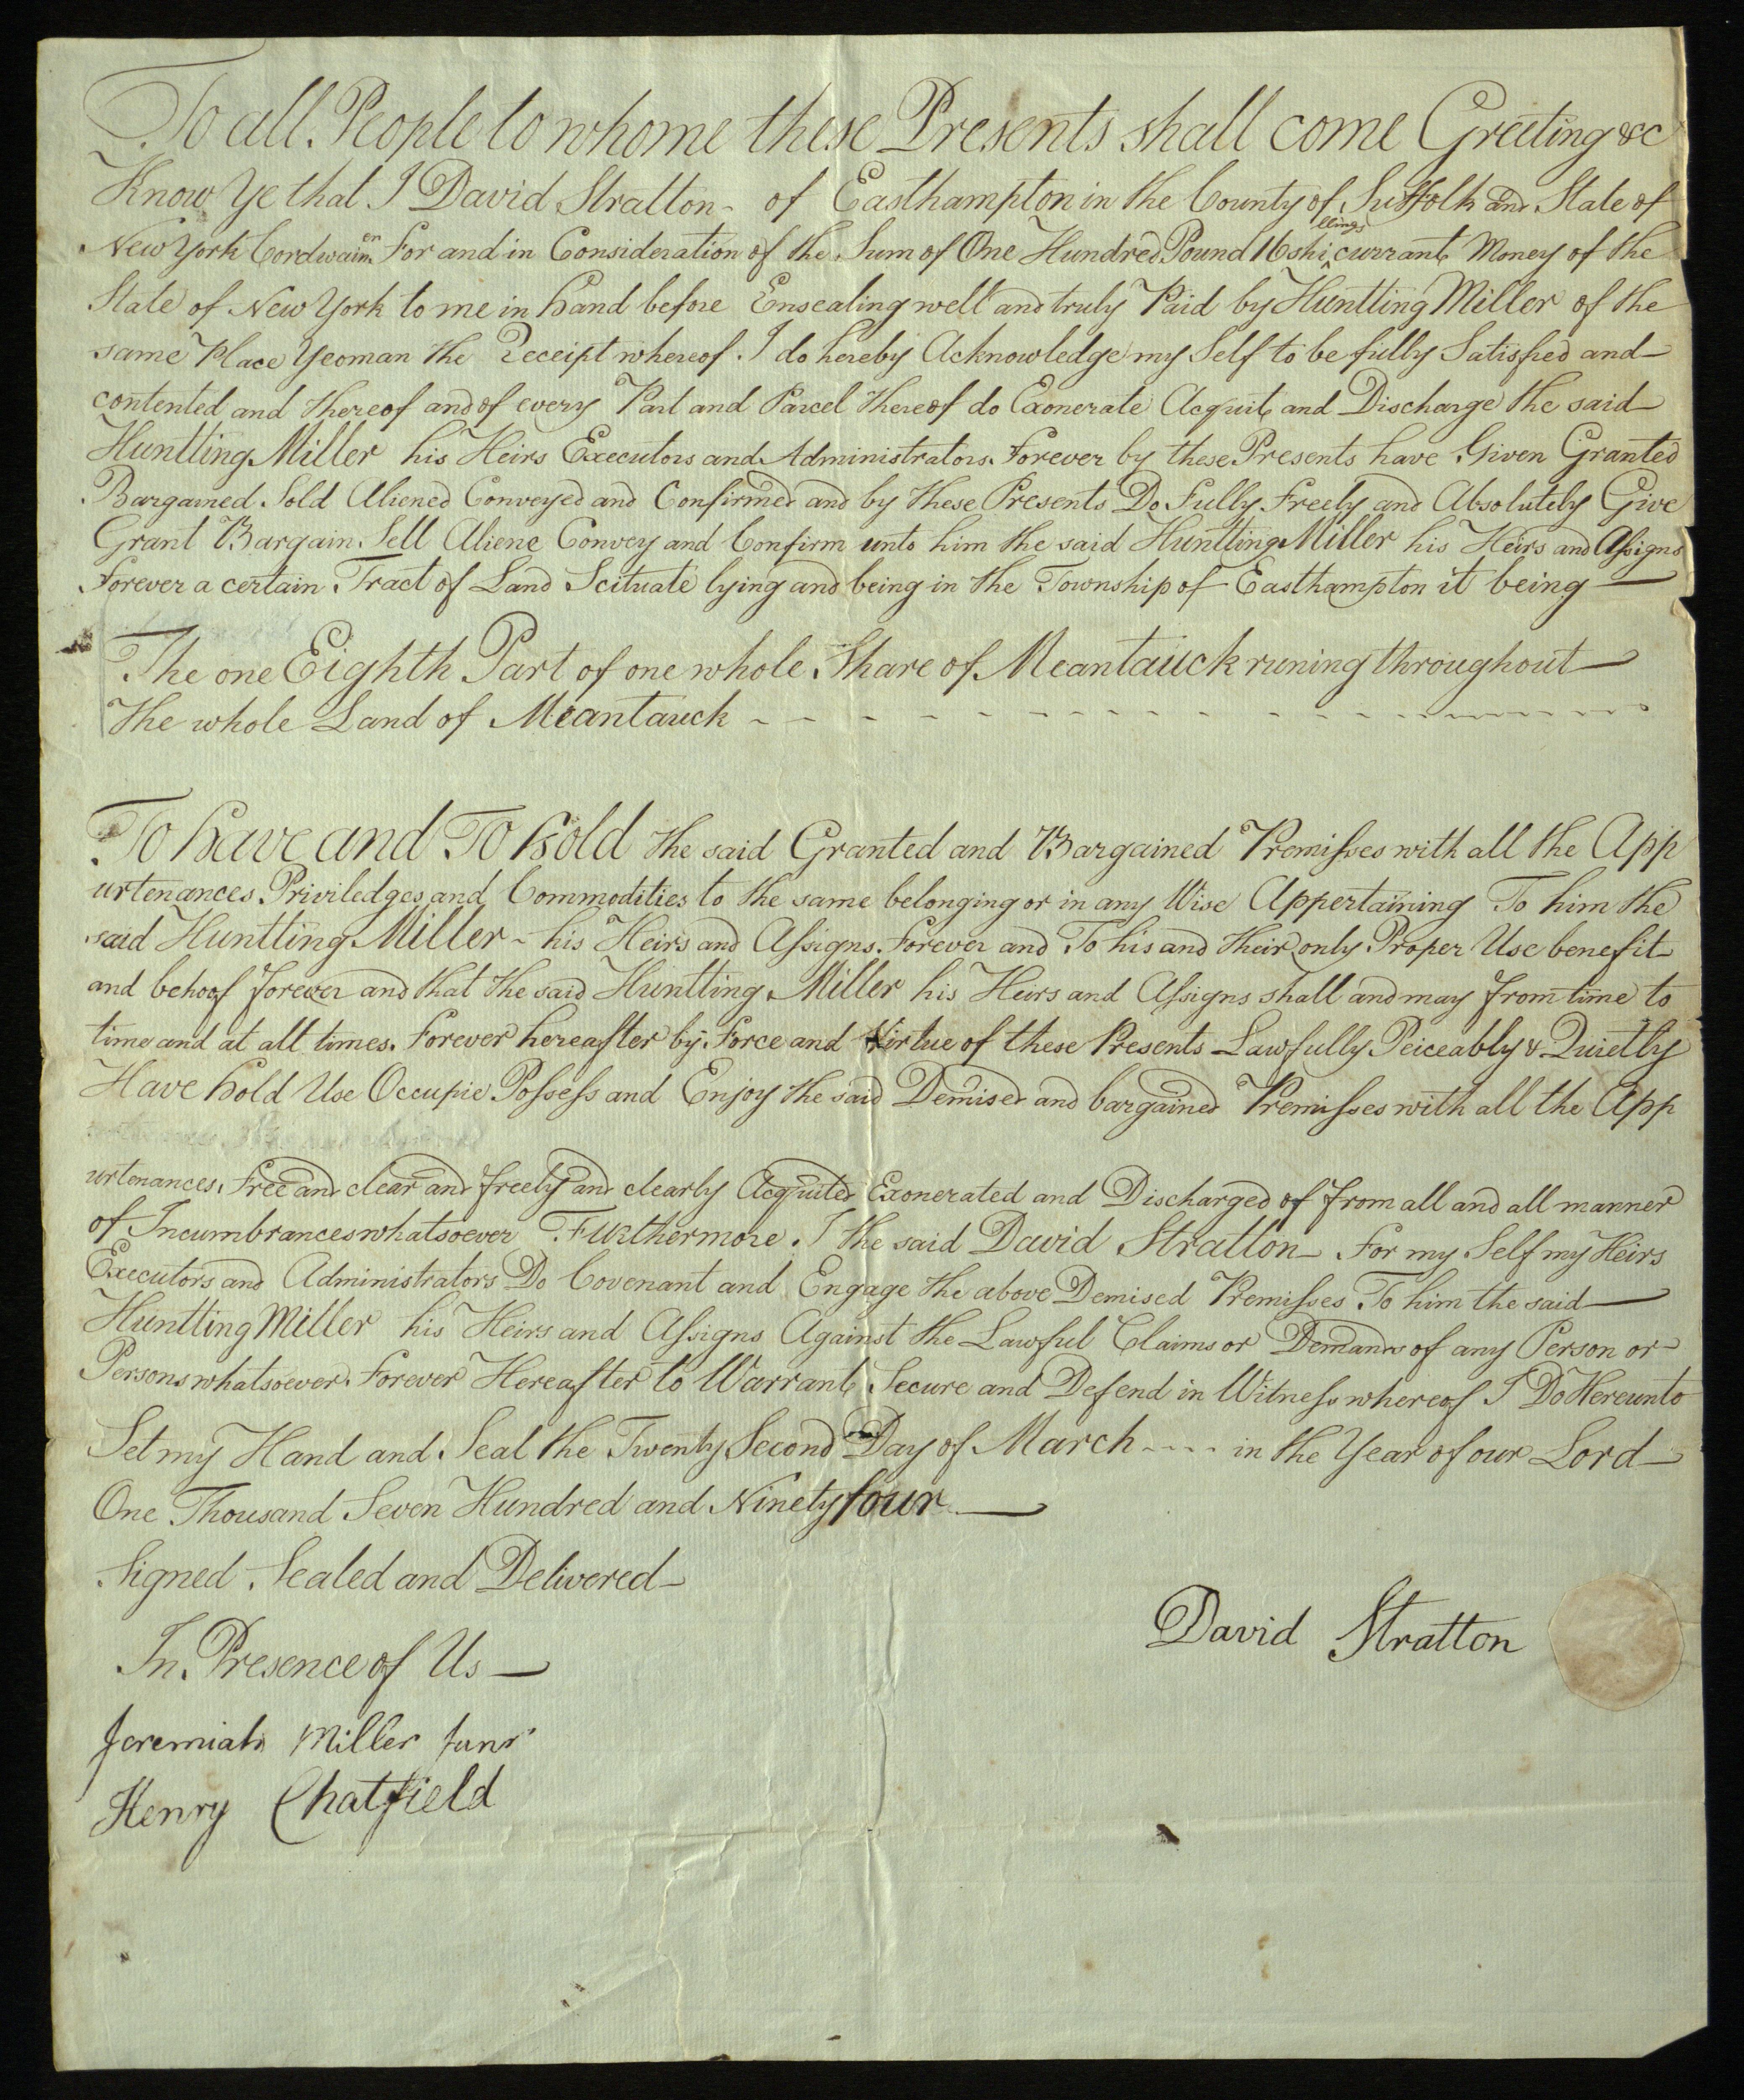 To all People to whome these Presents shall come Greeting &c
Know Ye that I David Stratton - of Easthampton in the County of Suffolk and State of
New York Cordwainer For and in Consideration of the Sum of One Hundred Pound 16 shillings currant Money of the
State of New York to me in hand before Ensealing well and truly Paid by Huntting Miller of the
same Place Yeoman the Receipt whereof I do hereby Acknowledge my Self to be fully Satisfied and
contented and thereof and of every Part and Parcel thereof do Exonerate Acquit and Discharge the said
Huntting Miller his Heirs Executors and Administrators Forever by these Presents have Given Granted
Bargained Sold Aliened Conveyed and Confirmed and by these Presents Do Fully Freely and Absolutely Give
Grant Bargain Sell Aliene Convey and Confirm unto him the said Huntting Miller his Heirs and Assigns
Forever a certain Tract of Land Scituate lying and being in the Township of Easthampton it being
The one Eighth Part of one whole Share of Meantauck runing throughout
the whole Land of Meantauck
To have and To hold the said Granted and Bargained Premisses with all the App
urtenances Priviledges and Commodities to the same belonging or in any Wise Appertaining To him the
said Huntting Miller - his Heirs and Assigns Forever and To his and their only Proper Use benefit
and behoof forever and that the said Huntting Miller his Heirs and Assigns shall and may from time to
time and at all times Forever hereafter by Force and Virtue of these Presents Lawfully Peiceably & Quietly
Have hold Use Occupie Possess and Enjoy the said Demised and bargained Premisses with all the App
urtenances, Free and clear and freely and clearly Acquited Exonerated and Discharged of from all and all manner
of Incumbrances whatsoever Furthermore I the said David Stratton - For my Self my Heirs
Executors and Administrators Do Covenant and Engage the above Demised Premisses To him the said
Huntting Miller his Heirs and Assigns Against the Lawful Claims or Demands of any Person or
Persons whatsoever Forever Hereafter to Warrant Secure and Defend in Witness whereof I Do Hereunto
Set my Hand and Seal the Twenty Second Day of March ---- in the Year of our Lord
One Thousand Seven Hundred and Ninety four
Signed Sealed and Delivered
In Presence of Us
David Stratton
Jeremiah Miller Junr
Henry Chatfield